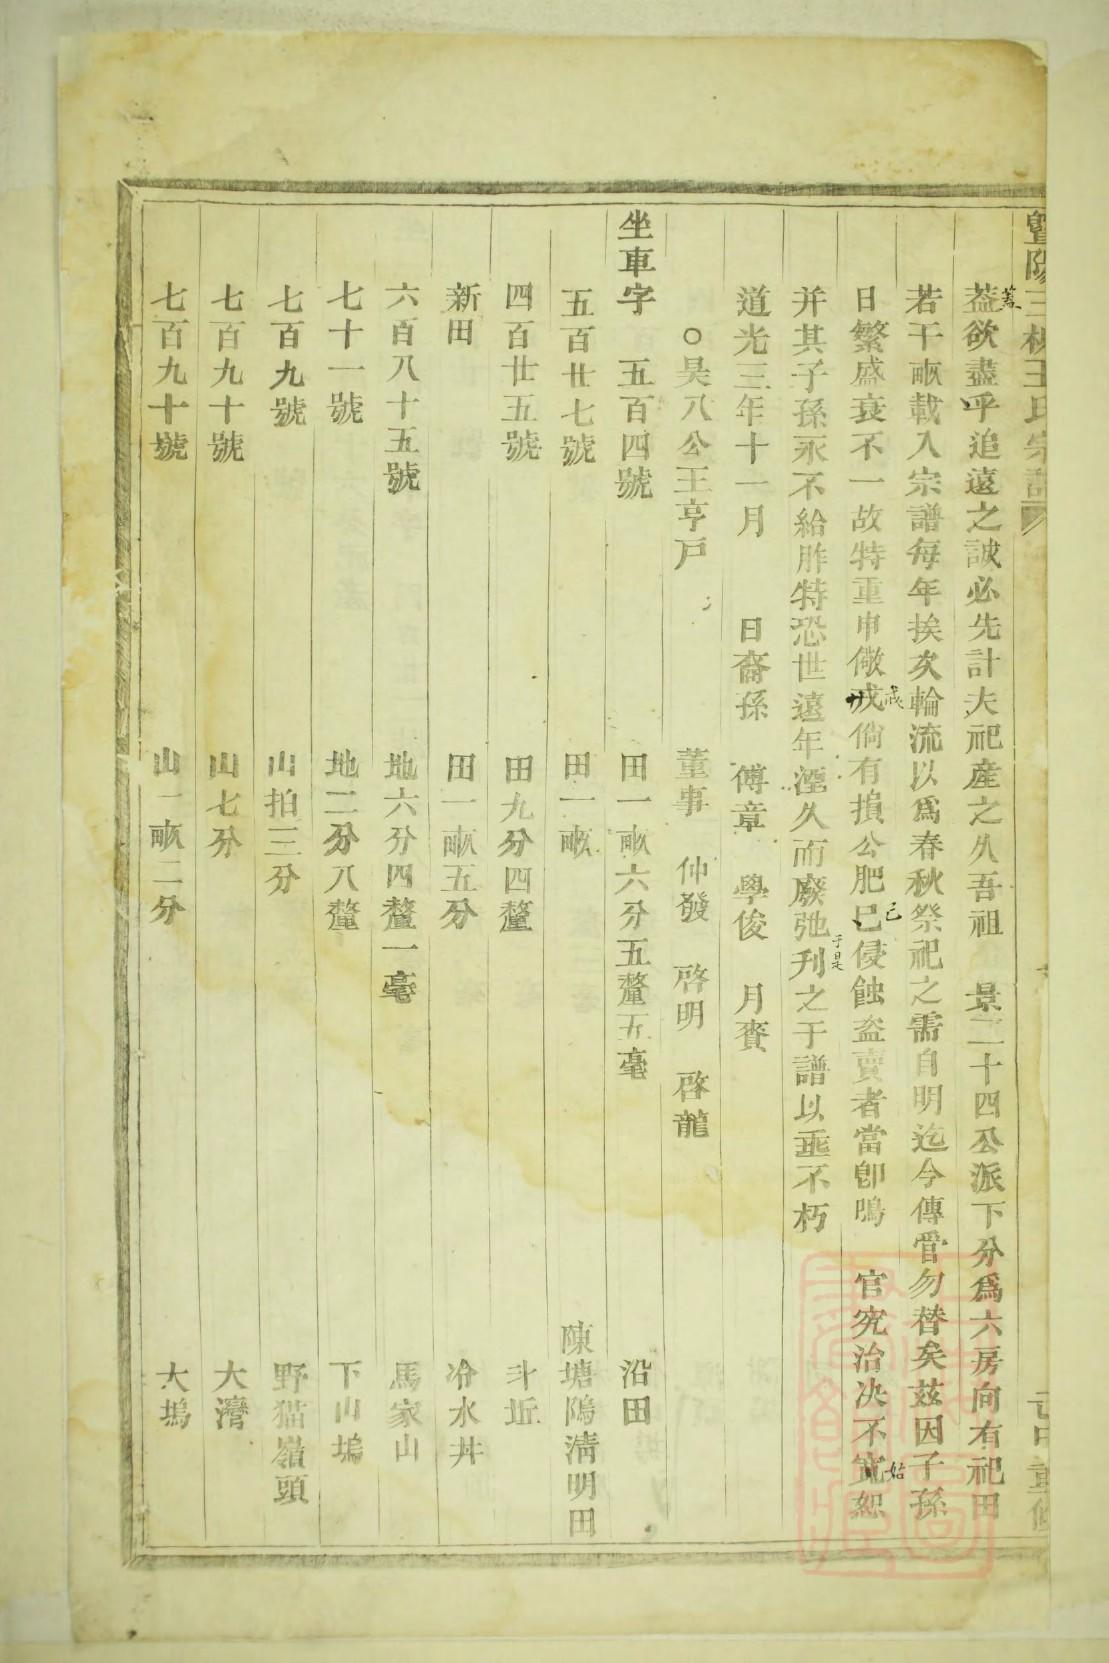 暨陽三槐王氏宗譜
葢欲盡乎追遠之誠必先計夫祀產之久吾祖 景二十四公派下分爲六房向有祀田
若干畝載入宗譜每年挨次輪流以爲春秋祭祀之需自明迄今傳管勿替矣茲因子孫
日繁盛衰不一故特重申儆戎倘有損公肥巳侵蝕盜賣者當卽鳴 官究治决不寬恕
并其子孫永不給胙特恐世遠年湮久而廢弛刋之于譜以垂不朽
道光三年十一月 日裔孫 傅章 學俊 月賚
○昊八公王亨戸 董事 仲發 啓明 啓龍
坐車字 五百四號 田一畝六分五釐五毫 沿田
五百廿七號 田一畝 陳塘隝淸明田
四百廿五號 田九分四釐 丼坵
新田 田一畝五分 冷水丼
六百八十五號 地六分四釐一毫 馬家山
七十一號 地二分八釐 下山塢
七百九號 山拍三分 野猫嶺頭
七百九十號 山七分 大灣
七百九十號 山一畝二分 大塢